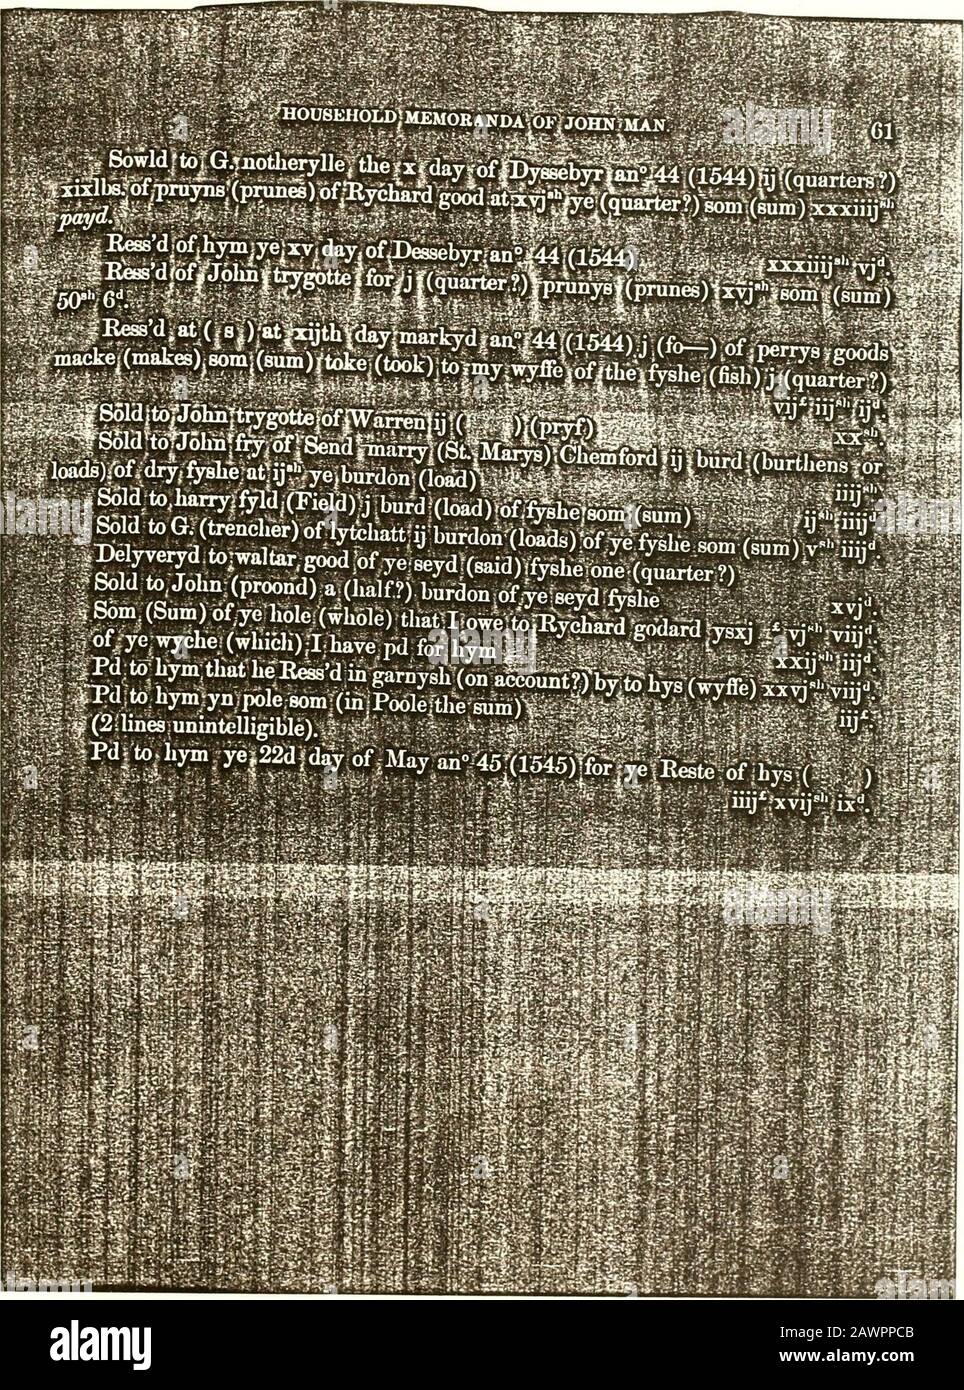 HOUSEHOLD MEMORANDA OF JOHN MAN. 61
Sowld to G. notherylle the x day of Dyssebyr anº 44 (1544) ij (quarters?)
xixlbs. of pruyns (prunes) of Rychard good at xvjsh ye (quarter?) som (sum) xxxiiijsh
payd.
Ress'd of hym ye xv day of Dessebyr anº 44 (1544). xxxiiijsh vjd.
Ress'd of John trygotte for j (quarter?) prunys (prunes) xvjsh som (sum)
50sh 6d.
Ress'd at ( s ) at xijth day markyd anº 44 (1544) j (fo—) of perrys goods
macke (makes) som (sum) toke (took) to my wyffe of the fyshe (fish) j (quarter?)
vij£ iijsh ijd.
Sold to John trygotte of Warren ij ( ) (pryf) xxsh.
Sold to John fry of Send marry (St. Marys) Chemford ij burd (burthens or
loads) of dry fyshe at ijsh ye burdon (load) iiijsh
Sold to harry fyld (Field) j burd (load) of fyshe som (sum) ijsh iiijd
Sold to G. (trencher) of lytchatt ij burdon (loads) of ye fyshe som (sum) vsh iiijd
Delyveryd to waltar good of ye seyd (said) fyshe one (quarter?)
Sold to John (proond) a (half?) burdon of ye seyd fyshe xvjd.
Som (Sum) of ye hole (whole) that I owe to Rychard godard ysxj £ vjsh viijd.
of ye wyche (which) I have pd for hym xxijsh iiijd.
Pd to hym that he Ress'd in garnysh (on account?) by to hys (wyffe) xxvjsh viijd.
Pd to hym yn pole som (in Poole the sum) iij£.
(2 lines unintelligible).
Pd to hym ye 22d day of May anº 45 (1545) for ye Reste of hys ( )
iiij£ xvijsh ixd.
alamy
Image ID: 2AWPPCB
www.alamy.com